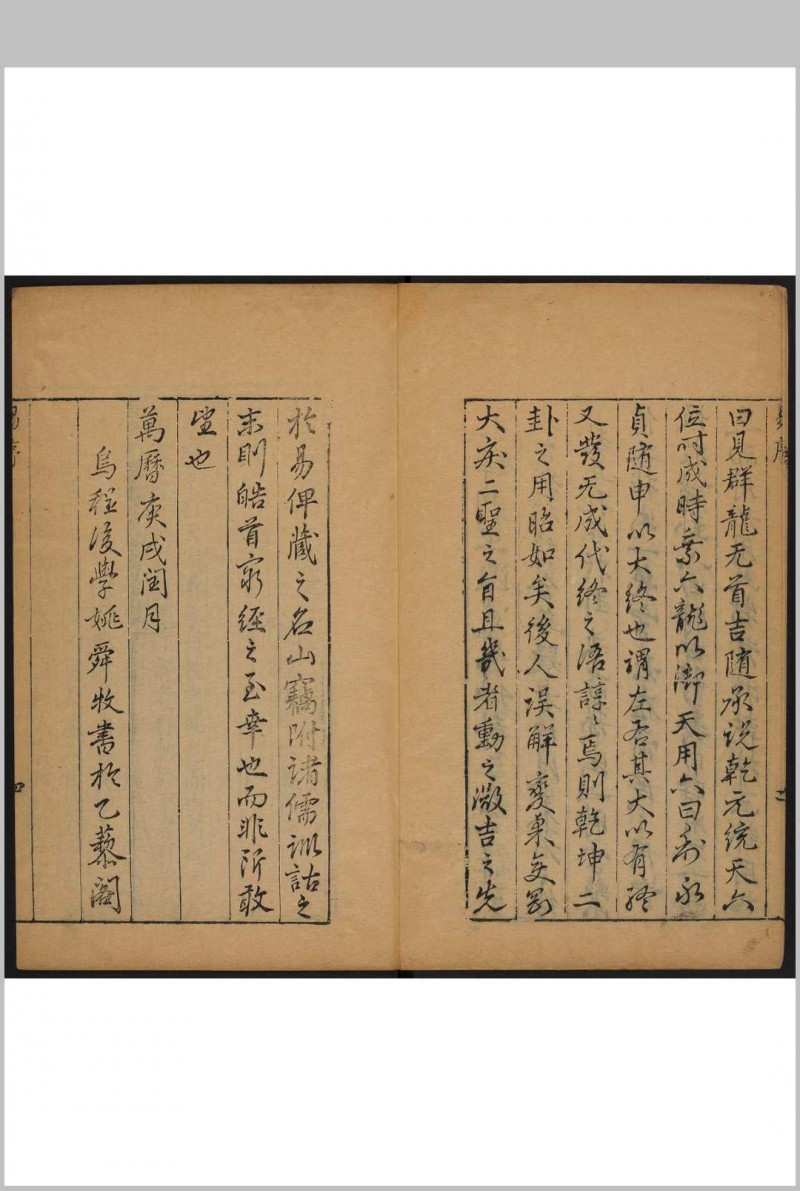 曰見群龍无首吉随承说乾元统天六
位时成時乘六龍以御天用六曰利永
貞随申以大终也謂左右其大以有终
又發无成代终之语諄〻焉则乾坤二
卦之用昭如矣後人误解變
大二聖之旨且幾者動之微吉之先
於易俾藏之名山竊附诸儒訓詁之
末则皓首窮經之至幸也而非所敢
望也
萬曆庚戌閏月
烏程後學姚舜牧書於乙藜阁